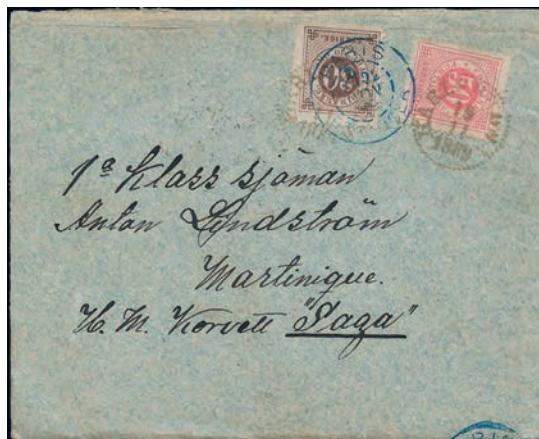 30
50
1889
1ª Klass sjöman
Anton Lindström
Martinique.
H. M. Korvett "Saga"